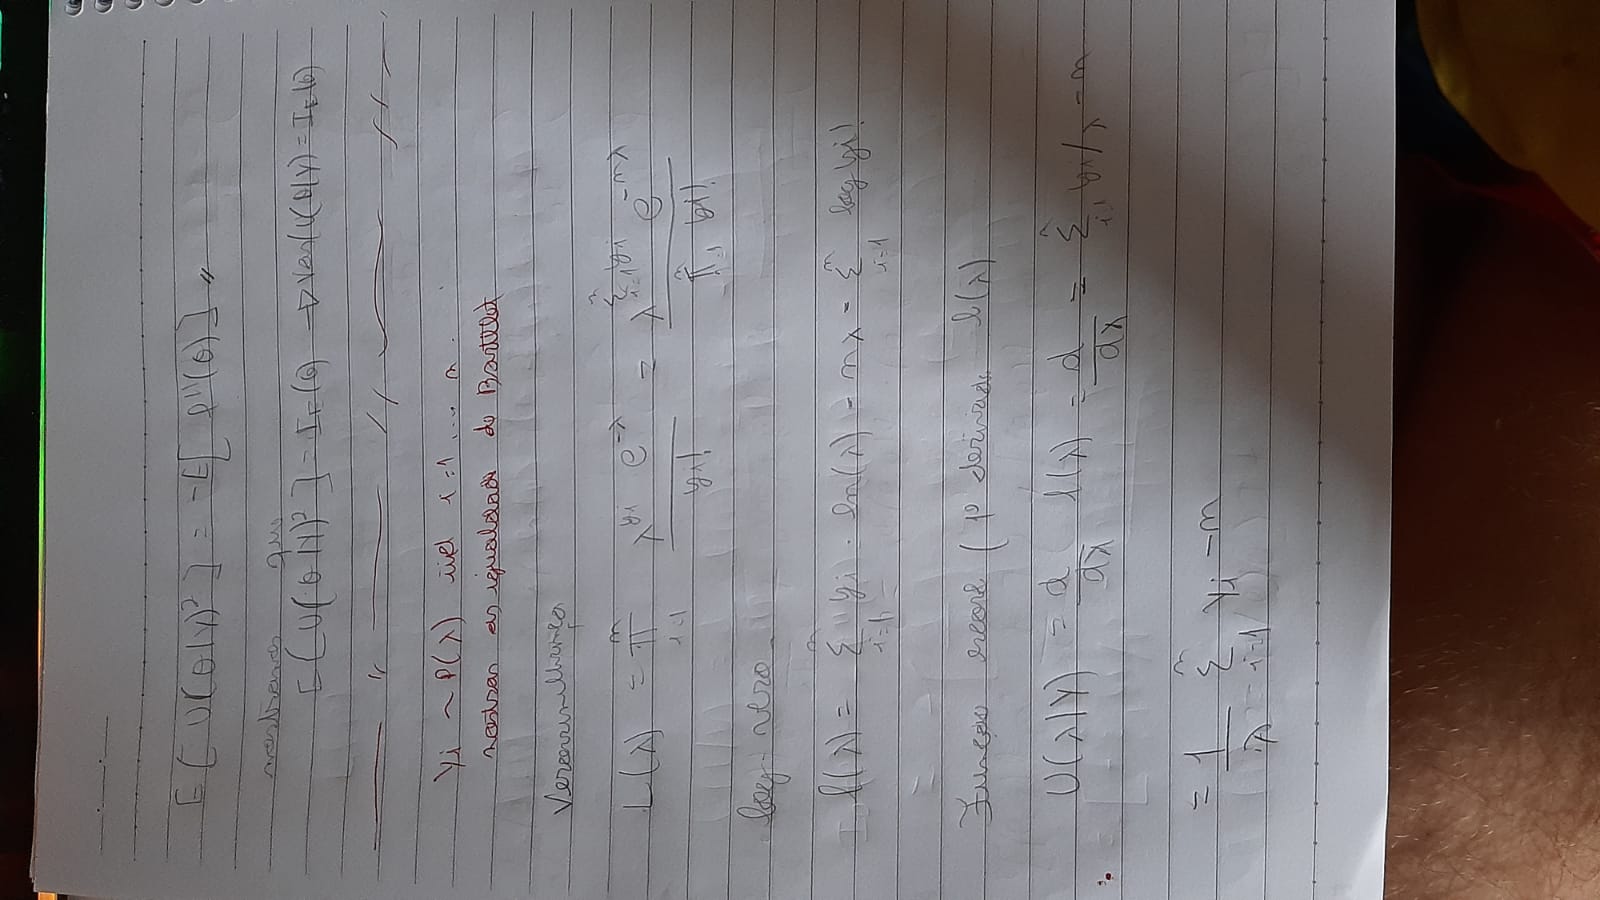 E[U(θ|Y)²] = -E[l''(θ)] //
mostramos que
E[U(θ|Y)²] = I_E(θ) → Var(U(θ|Y) = I_E(θ)
Yi ~ P(λ) iid i=1 ... n.
mostrar as igualdade de Bartlet
Verossimilhança
L(λ) = ∏_{i=1}^{n} λ^{yi} e^{-λ} / yi! = λ^{Σ_{i=1}^{n} yi} e^{-nλ} / ∏_{i=1}^{n} yi!
log-vero
l(λ) = Σ_{i=1}^{n} yi · ln(λ) - nλ - Σ_{i=1}^{n} log yi!
Função escore (1º derivada l(λ)
U(λ|Y) = d/dλ l(λ) = d/dλ = Σ_{i=1}^{n} yi/λ - n
= 1/λ Σ_{i=1}^{n} Yi - n